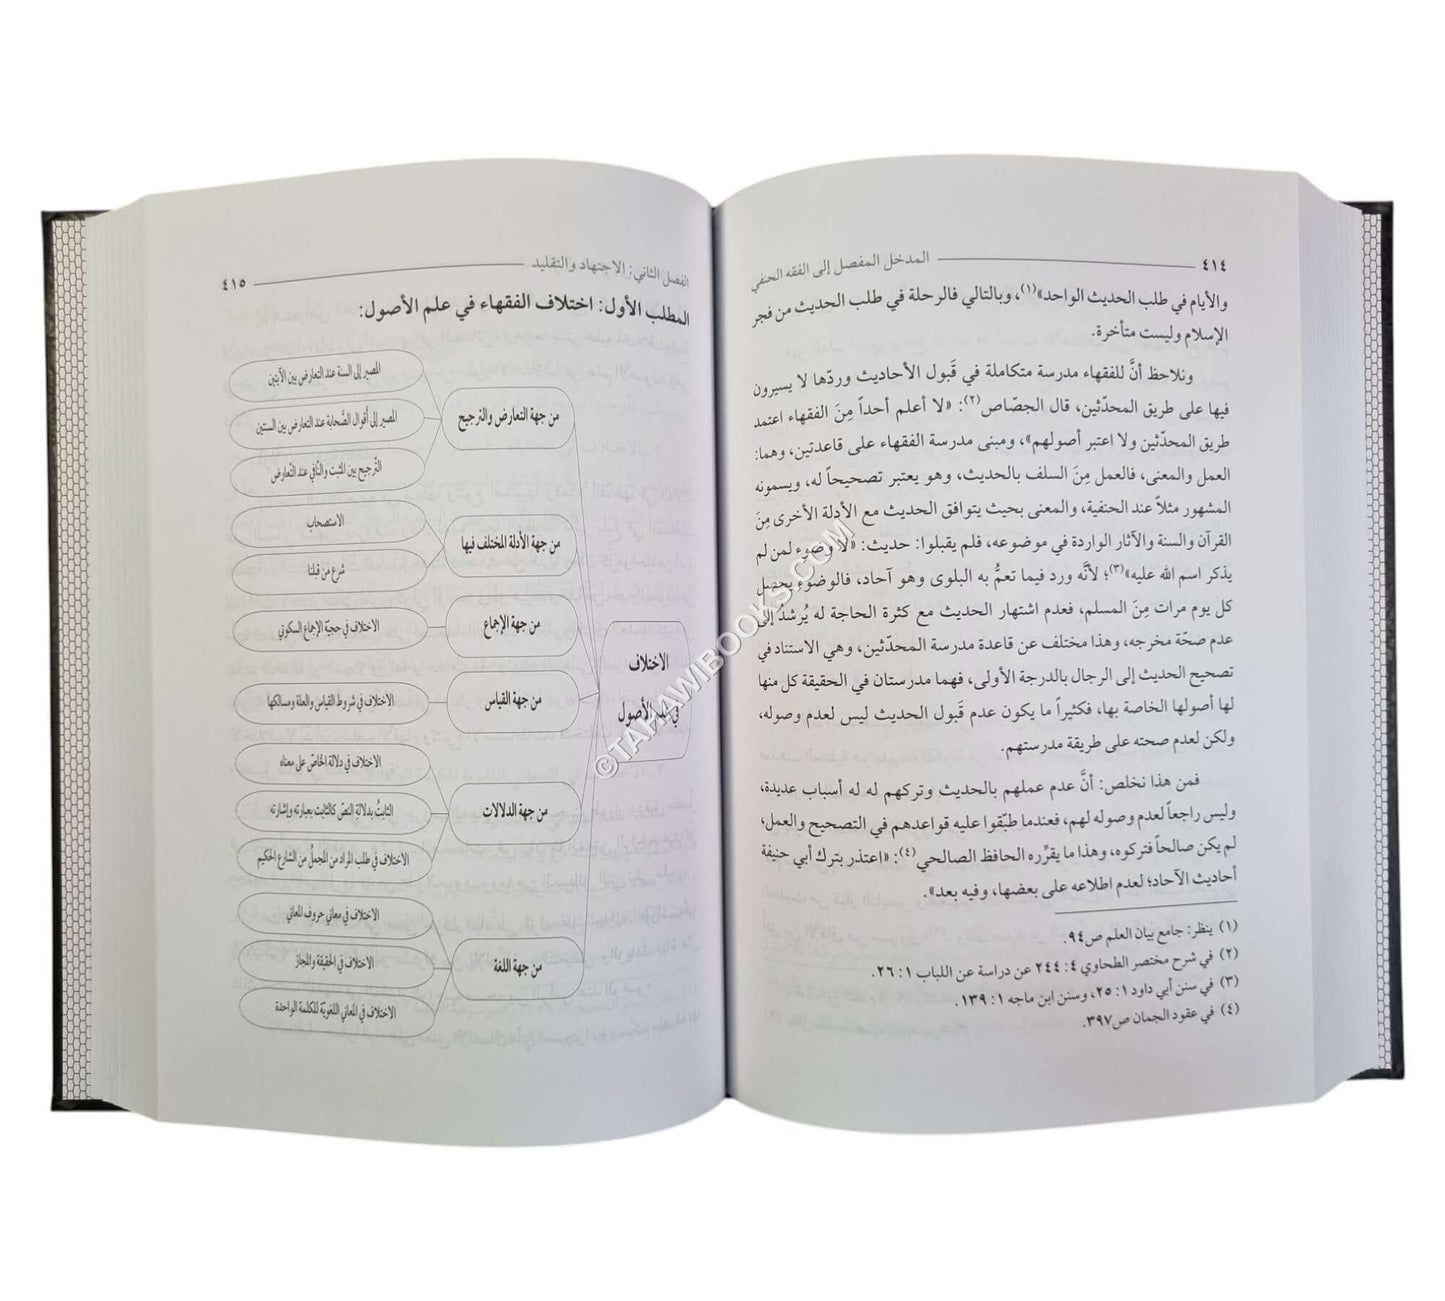 ٤١٤ المدخل المفصل إلى الفقه الحنفي
والأيام في طلب الحديث الواحد»(١)، وبالتالي فالرحلة في طلب الحديث من فجر
الإسلام وليست متأخرة.
ونلاحظ أنَّ للفقهاء مدرسة متكاملة في قَبول الأحاديث وردّها لا يسيرون
فيها على طريق المحدّثين، قال الجصّاص(٢): «لا أعلم أحداً مِنَ الفقهاء اعتمد
طريق المحدّثين ولا اعتبر أصولهم»، ومبنى مدرسة الفقهاء على قاعدتين، وهما:
العمل والمعنى، فالعمل مِنَ السلف بالحديث، وهو يعتبر تصحيحاً له، ويسمونه
المشهور مثلاً عند الحنفية، والمعنى بحيث يتوافق الحديث مع الأدلة الأخرى مِنَ
القرآن والسنة والآثار الواردة في موضوعه، فلم يقبلوا: حديث: «لا وضوء لمن لم
يذكر اسم الله عليه»(٣)؛ لأنَّه ورد فيما تعمُّ به البلوى وهو آحاد، فالوضوء يحصل
كل يوم مرات مِنَ المسلم، فعدم اشتهار الحديث مع كثرة الحاجة له يُرشدُ إلى
عدم صحّة مخرجه، وهذا مختلف عن قاعدة مدرسة المحدّثين، وهي الاستناد في
تصحيح الحديث إلى الرجال بالدرجة الأولى، فهما مدرستان في الحقيقة كل منها
لها أصولها الخاصة بها، فكثيراً ما يكون عدم قَبول الحديث ليس لعدم وصوله،
ولكن لعدم صحته على طريقة مدرستهم.
فمن هذا نخلص: أنَّ عدم عملهم بالحديث وتركهم له له أسباب عديدة،
وليس راجعاً لعدم وصوله لهم، فعندما طبّقوا عليه قواعدهم في التصحيح والعمل،
لم يكن صالحاً فتركوه، وهذا ما يقرِّره الحافظ الصالحي(٤): «اعتذر بترك أبي حنيفة
أحاديث الآحاد؛ لعدم اطلاعه على بعضها، وفيه بعد».
(١) ينظر: جامع بيان العلم ص٩٤.
(٢) في شرح مختصر الطحاوي ٤: ٢٤٤ عن دراسة عن اللباب ١: ٢٦.
(٣) في سنن أبي داود ١: ٢٥، وسنن ابن ماجه ١: ١٣٩.
(٤) في عقود الجمان ص٣٩٧.
الفصل الثاني: الاجتهاد والتقليد ٤١٥
المطلب الأول: اختلاف الفقهاء في علم الأصول:
الاختلاف
في علم الأصول
من جهة التعارض والترجيح
المصير إلى السنة عند التعارض بين الآيتين
المصير إلى أقوال الصَّحابة عند التعارض بين السنتين
التّرجيح بين المثبت والنَّافي عند التّعارض
من جهة الأدلة المختلف فيها
الاستصحاب
شرع من قبلنا
من جهة الإجماع
الاختلاف في حجيّة الإجماع السكوتي
من جهة القياس
الاختلاف في شروط القياس والعلة ومسالكها
من جهة الدلالات
الاختلاف في دلالة الخاصّ على معناه
الثابتُ بدلالةِ النصّ كالثابت بعبارته وإشارته
الاختلاف في طلب المراد من المجملُ من الشارع الحكيم
من جهة اللغة
الاختلاف في معاني حروف المعاني
الاختلاف في الحقيقة والمجاز
الاختلاف في المعاني اللغويّة للكلمة الواحدة
©TAHAWIBOOKS.COM